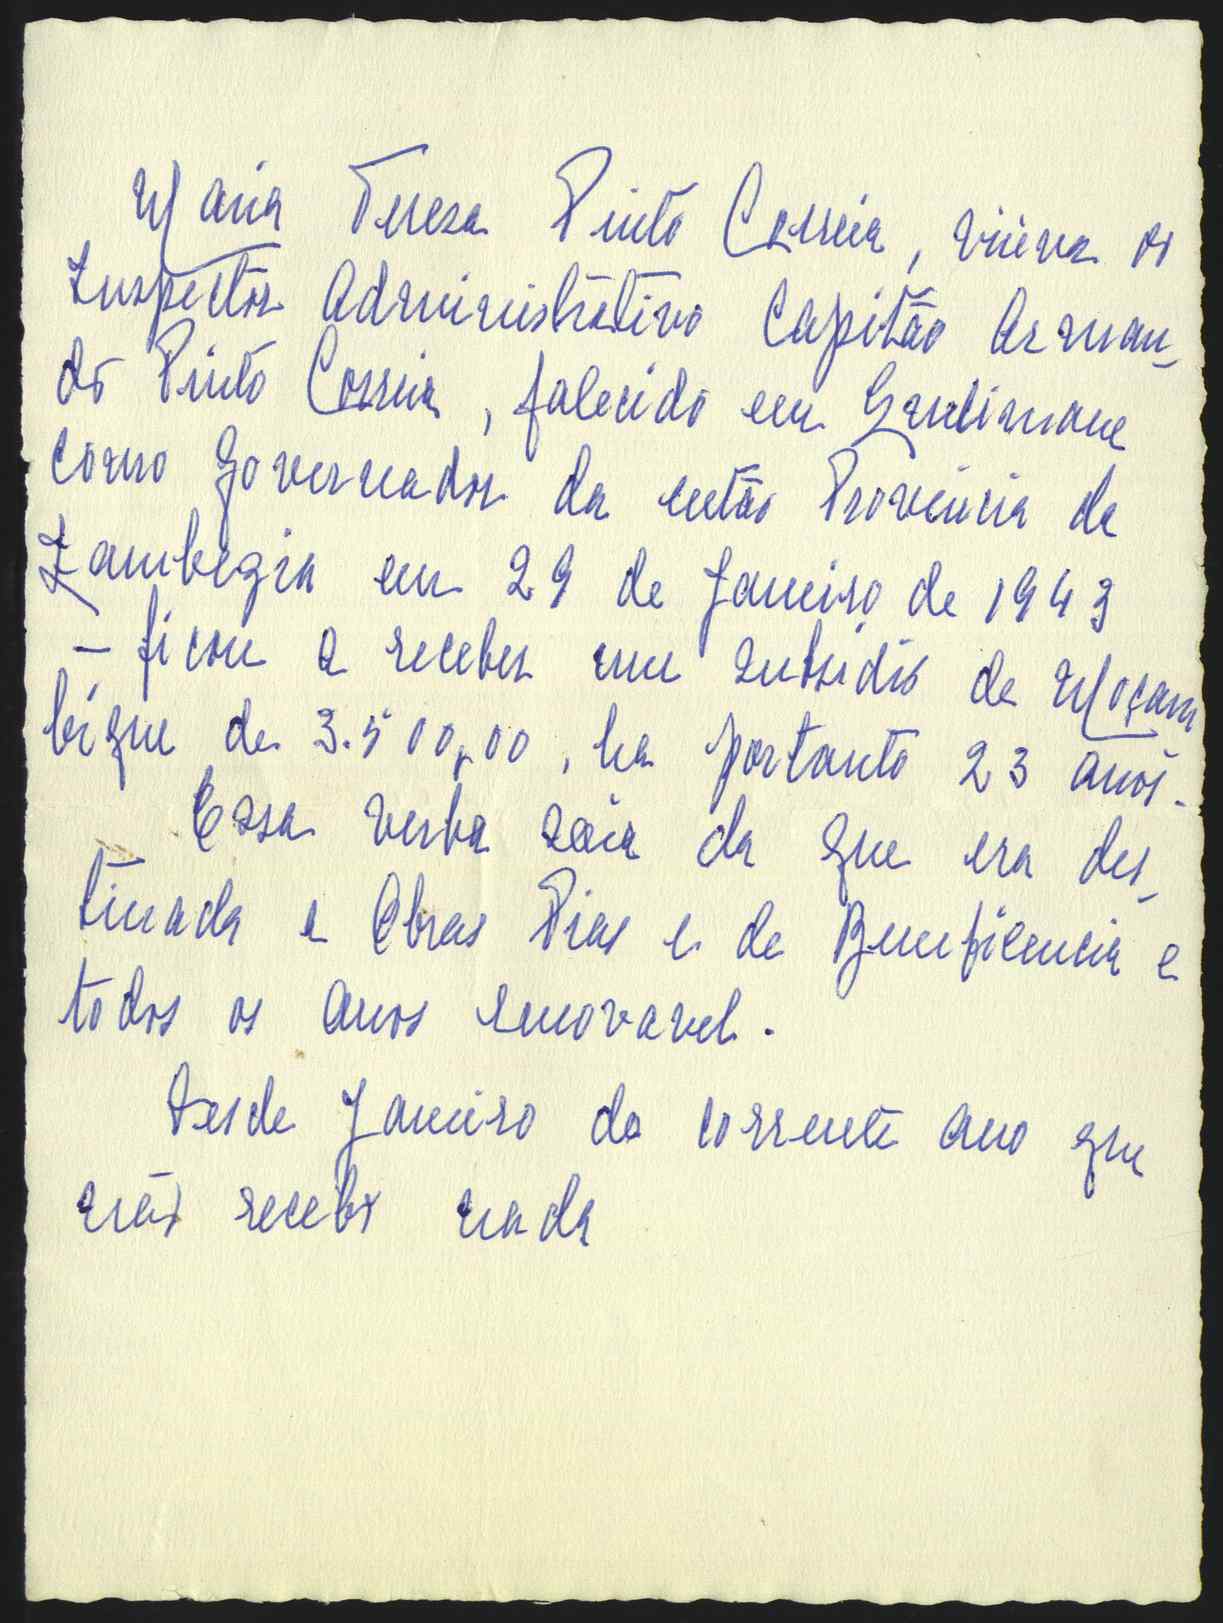 Maria Tereza Pinto Correia, viúva do
Inspector Administrativo Capitão Arman-
do Pinto Correia, falecido em Quelimane
como Governador da então Provincia da
Zambezia em 29 de Janeiro de 1943
– ficou a receber um subsidio de Moçam
bique de 3.500,00, ha portanto 23 anos.
Essa verba saía da que era des-
tinada a Obras Pias e de Beneficencia e
todos os anos renovavel.
Desde Janeiro do corrente ano que
não recebe nada